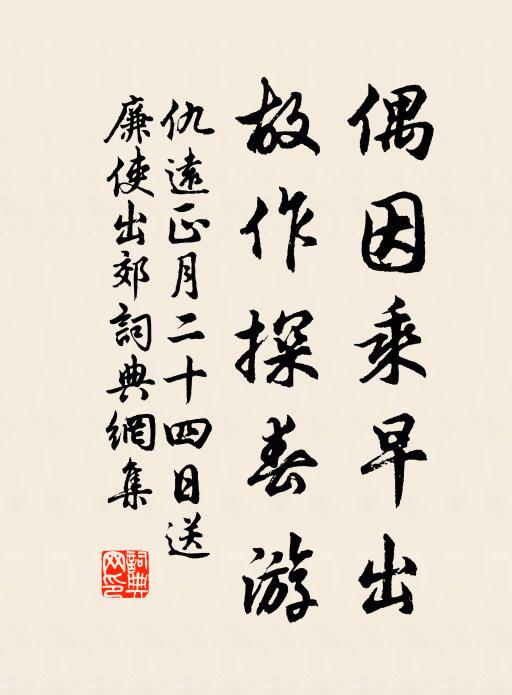 偶因乘早出
故作探春游
仇遠正月二十四日送
廉使出郊詞典網集
詞典网印